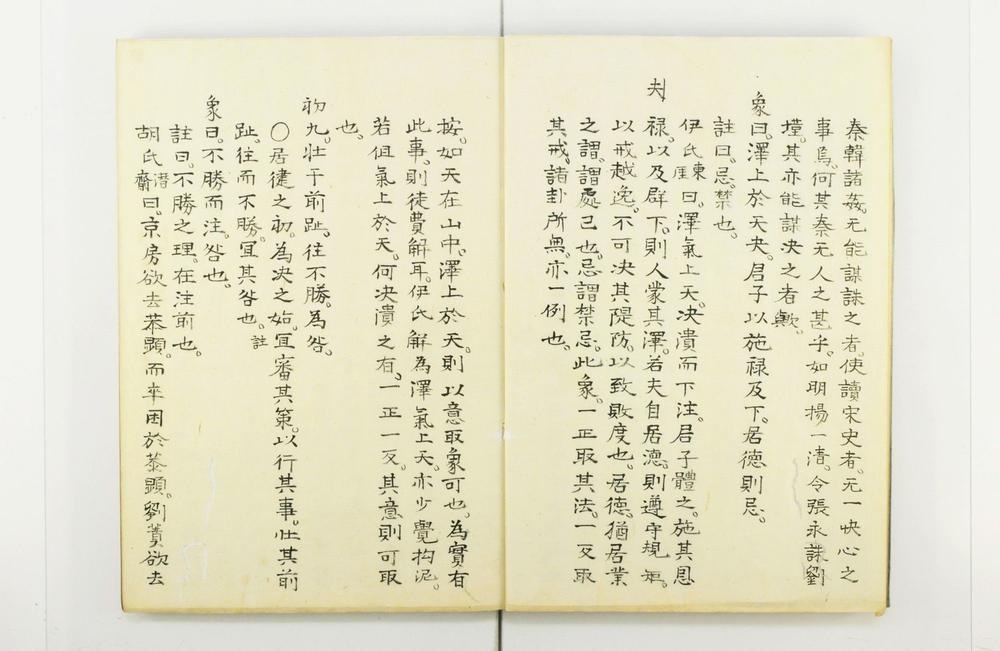 秦韓諸姦。无能謀誅之者。使讀宋史者。无一快心之
事焉。何其秦无人之甚乎。如明楊一清。令張永誅劉
瑾。其亦能謀决之者歟。
象曰。澤上於天夬。君子以施禄及下。居德則忌。
註曰。忌。禁也。
伊氏東厓曰。澤氣上天。决潰而下注。君子體之。施其恩
夬
禄。以及群下。則人蒙其澤。若夫自居德。則遵守規矩。
以戒越逸。不可决其隄防。以致敗度也。居德。猶居業
之謂。謂處己也。忌謂禁忌。此象。一正取其法。一反取
其戒。諸卦所無。亦一例也。
按。如天在山中。澤上於天。則以意取象可也。為實有
此事。則徒費解耳。伊氏解為澤氣上天。亦少覺拘泥。
若但氣上於天。何决潰之有。一正一反。其意則可取
也。
初九。壮于前趾。往不勝。為咎。
〇居健之初。為决之始。宜審其策。以行其事。壮其前
趾。往而不勝。宜其咎也。註
象曰。不勝而注。咎也。
註曰。不勝之理。在注前也。
胡氏潛齋曰。京房欲去恭顕。而卒困於恭顕。劉蕡欲去